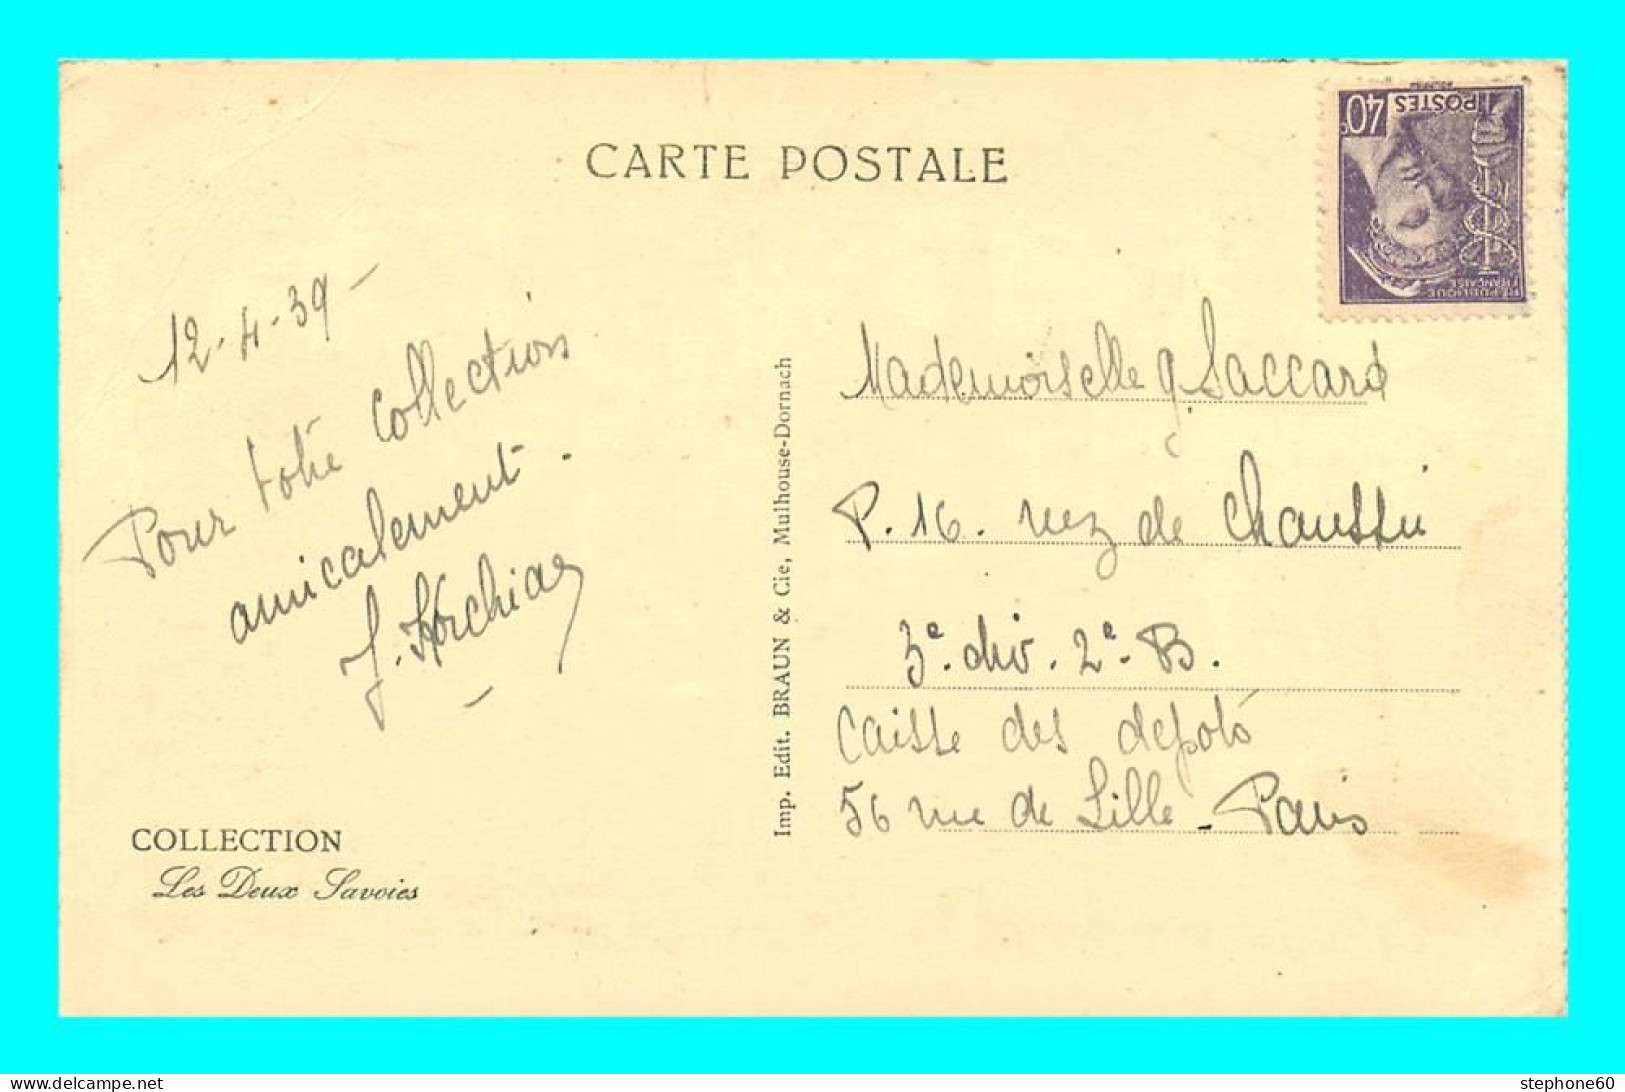 CARTE POSTALE
40c
POSTES
RÉPUBLIQUE
FRANÇAISE
12-4-39-
Pour votre collection
amicalement.
J.
COLLECTION
Les Deux Savoies
Imp. Edit. BRAUN & Cie, Mulhouse-Dornach
Mademoiselle G. Saccard
P.16. rez de Chaussée
3e. div. 2e. B.
Caisse des depots
56 rue de Lille - Paris
stephone60